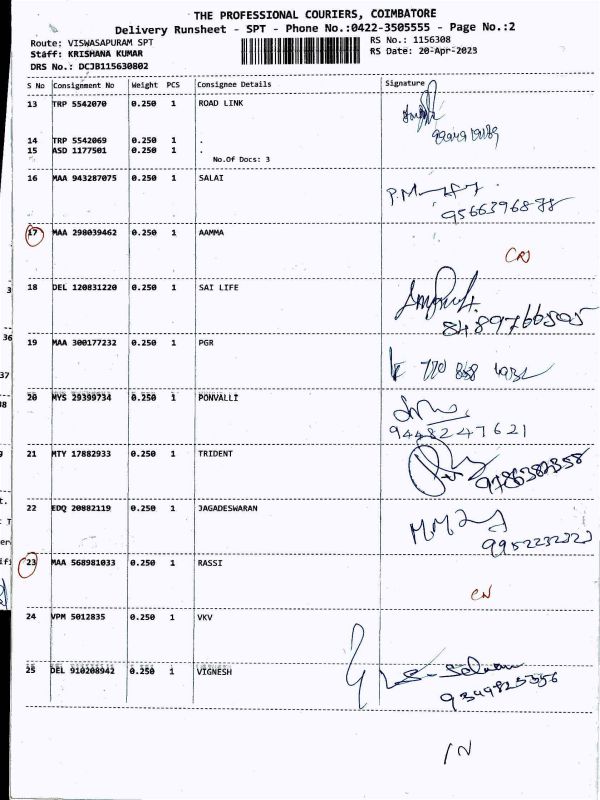 THE PROFESSIONAL COURIERS, COIMBATORE
Delivery Runsheet - SPT - Phone No.:0422-3505555 - Page No.:2
Route: VISWASAPURAM SPT
Staff: KRISHANA KUMAR
DRS No.: DCJB115630802
RS No.: 1156308
RS Date: 20-Apr-2023
S No Consignment No Weight PCS Consignee Details Signature
13 TRP 5542070 0.250 1 ROAD LINK
14 TRP 5542069 0.250 1 .
15 ASD 1177501 0.250 1 .
No.Of Docs: 3
16 MAA 943287075 0.250 1 SALAI
17 MAA 298039462 0.250 1 AAMMA
18 DEL 120831220 0.250 1 SAI LIFE
8489766505
19 MAA 300177232 0.250 1 PGR
20 MYS 29399734 0.250 1 PONVALLI
9448247621
21 MTY 17882933 0.250 1 TRIDENT
9786382358
22 EDQ 20882119 0.250 1 JAGADESWARAN
9952232223
23 MAA 568981033 0.250 1 RASSI
CN
24 VPM 5012835 0.250 1 VKV
25 DEL 910208942 0.250 1 VIGNESH
9349825356
IN